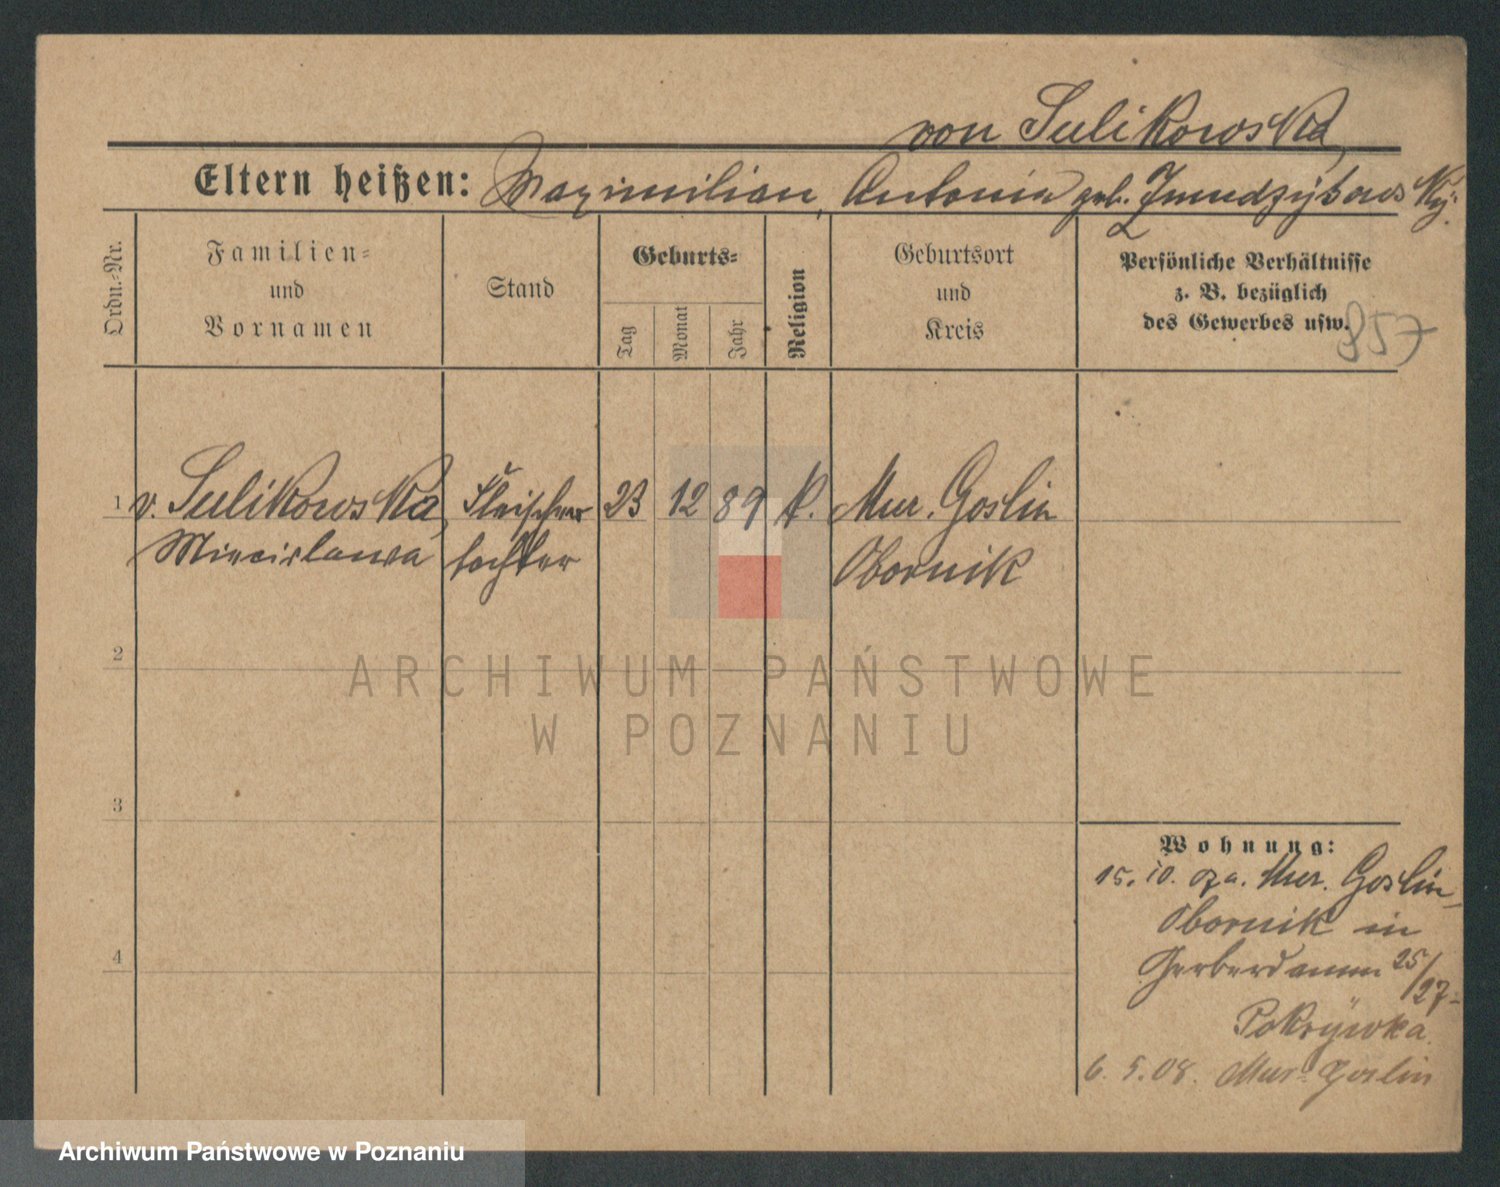 von Sulikowska,
Eltern heißen: Maximilian, Antonia geb.
Ordn.-Nr.
Familien-
und
Vornamen
Stand
Geburts-
Tag
Monat
Jahr
Religion
Geburtsort
und
Kreis
Persönliche Verhältnisse
z. B. bezüglich
des Gewerbes usw.
857
1 v. Sulikowska, Fleischer 23 12 89 k. Mur. Goslin
Miecislawa tochter Obornik
2
3
4
Wohnung:
15. 10. Mur. Goslin,
Obornik in
Gerberdamm 25/27-
Pokrywka.
6. 5. 08. Mur. Goslin
ARCHIWUM PAŃSTWOWE
W POZNANIU
Archiwum Państwowe w Poznaniu